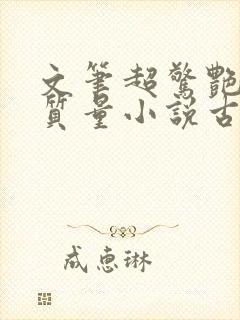 文筆超驚艷
質量小說古
成惠琳